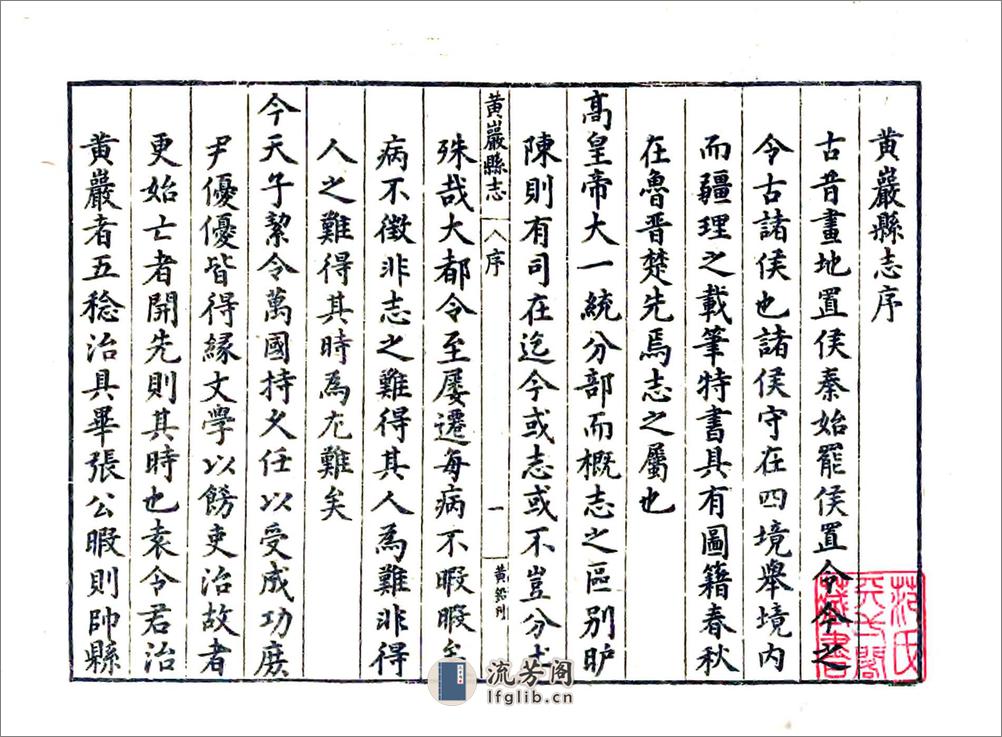 黄巖縣志序
古昔畫地置侯秦始罷侯置令今之
令古諸侯也諸侯守在四境舉境内
而疆理之載筆特書具有圖籍春秋
在魯晉楚先焉志之屬也
髙皇帝大一統分部而概志之區别
陳則有司在迄今或志或不豈分
殊哉大都令至屢遷每病不暇暇
病不徵非志之難得其人為難非得
人之難得其時為尤難矣
今天子絜令萬國持久任以受成功庶
尹優優皆得緣文學以飾吏治故者
更始亡者開先則其時也袁令君治
黄巖者五稔治具畢張公暇則帥縣
黄巖縣志
序
一
范氏天一閣藏書
流芳阁
lfglib.cn